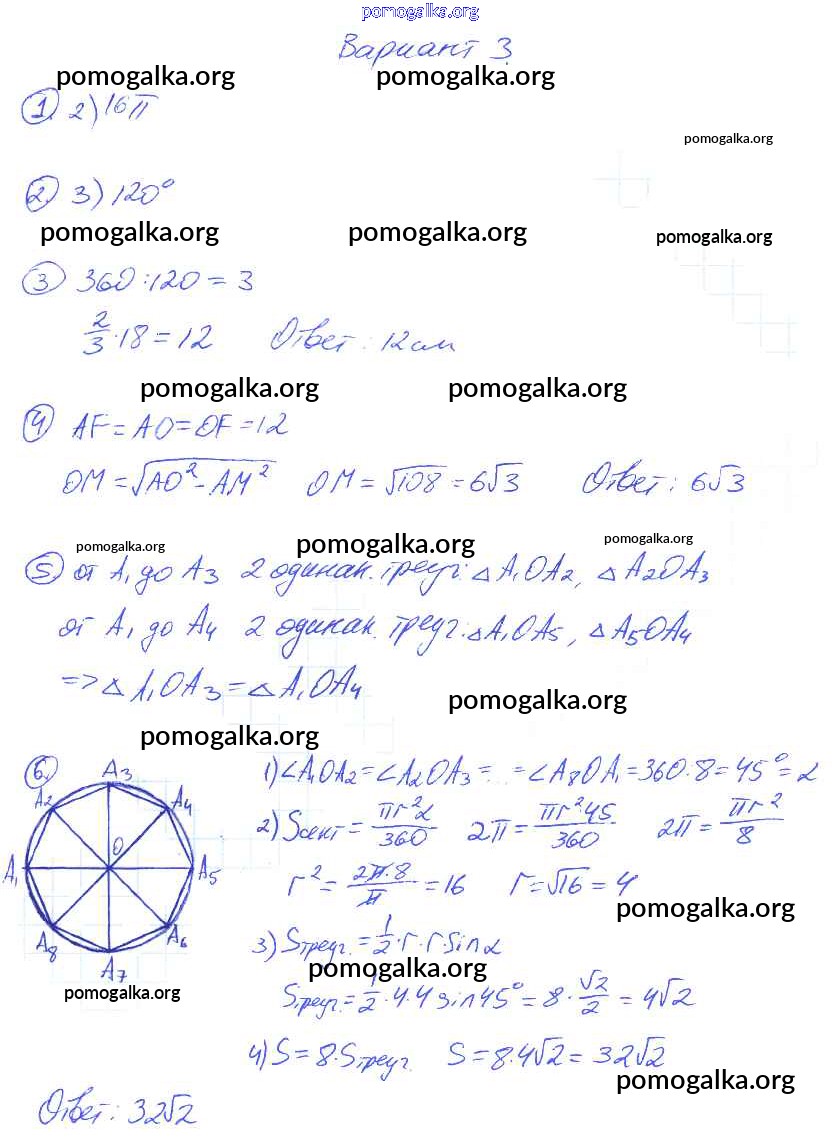 pomogalka.org
Вариант 3
pomogalka.org pomogalka.org
1. 2) 16π
pomogalka.org
2. 3) 120°
pomogalka.org pomogalka.org pomogalka.org
3 360 : 120 = 3
2/3 · 18 = 12 Ответ: 12 см
pomogalka.org pomogalka.org
4 AF = AO = OF = 12
OM = √(AO² - AM²) OM = √108 = 6√3 Ответ: 6√3
pomogalka.org pomogalka.org pomogalka.org
5. от A₁ до A₃ 2 одинак. треуг: △A₁OA₂, △A₂OA₃
от A₁ до A₄ 2 одинак. треуг: △A₁OA₅, △A₅OA₄
=> △A₁OA₃ = △A₁OA₄
pomogalka.org
pomogalka.org
6. 1) ∠A₁OA₂ = ∠A₂OA₃ = ... = ∠A₈OA₁ = 360 · 8 = 45° = α
A₃
A₂ A₄
O
A₁ A₅
A₈ A₆
A₇
2) Sсект = πr²α/360 2π = πr²45/360 2π = πr²/8
r² = 2π·8/π = 16 r = √16 = 4
pomogalka.org
3) Sтреуг. = 1/2 · r · r · sin α
pomogalka.org
pomogalka.org
Sтреуг. = 1/2 · 4 · 4 sin 45° = 8 · √2/2 = 4√2
4) S = 8 · Sтреуг. S = 8 · 4√2 = 32√2
pomogalka.org
Ответ: 32√2